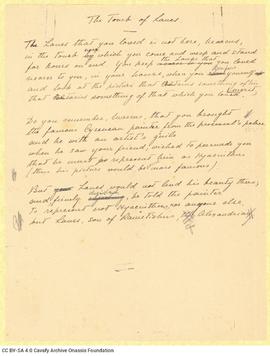 The Tomb of Lanes
The Lanes that you loved is not here, Marcus,
in the tomb by which you come and weep and stand
for hours on end. The Lanes that you loved
nearer to you, in your house, when you
and look at the picture that
that something of that you loved.
Do you remember, Marcus, that you brought
the famous Cyrenean painter from the proconsul's palace
and he with an artist's guile
when he saw your friend, wished to persuade you
that he must represent him as Hyacinthus
(thus his picture would be more famous)
But your Lanes would not lend his beauty thus;
and firmly he told the painter
to represent not Hyacinthus, nor anyone else,
but Lanes, son of Rametichus, Alexandrian.
CC BY-SA 4.0 Cavafy Archive Onassis Foundation